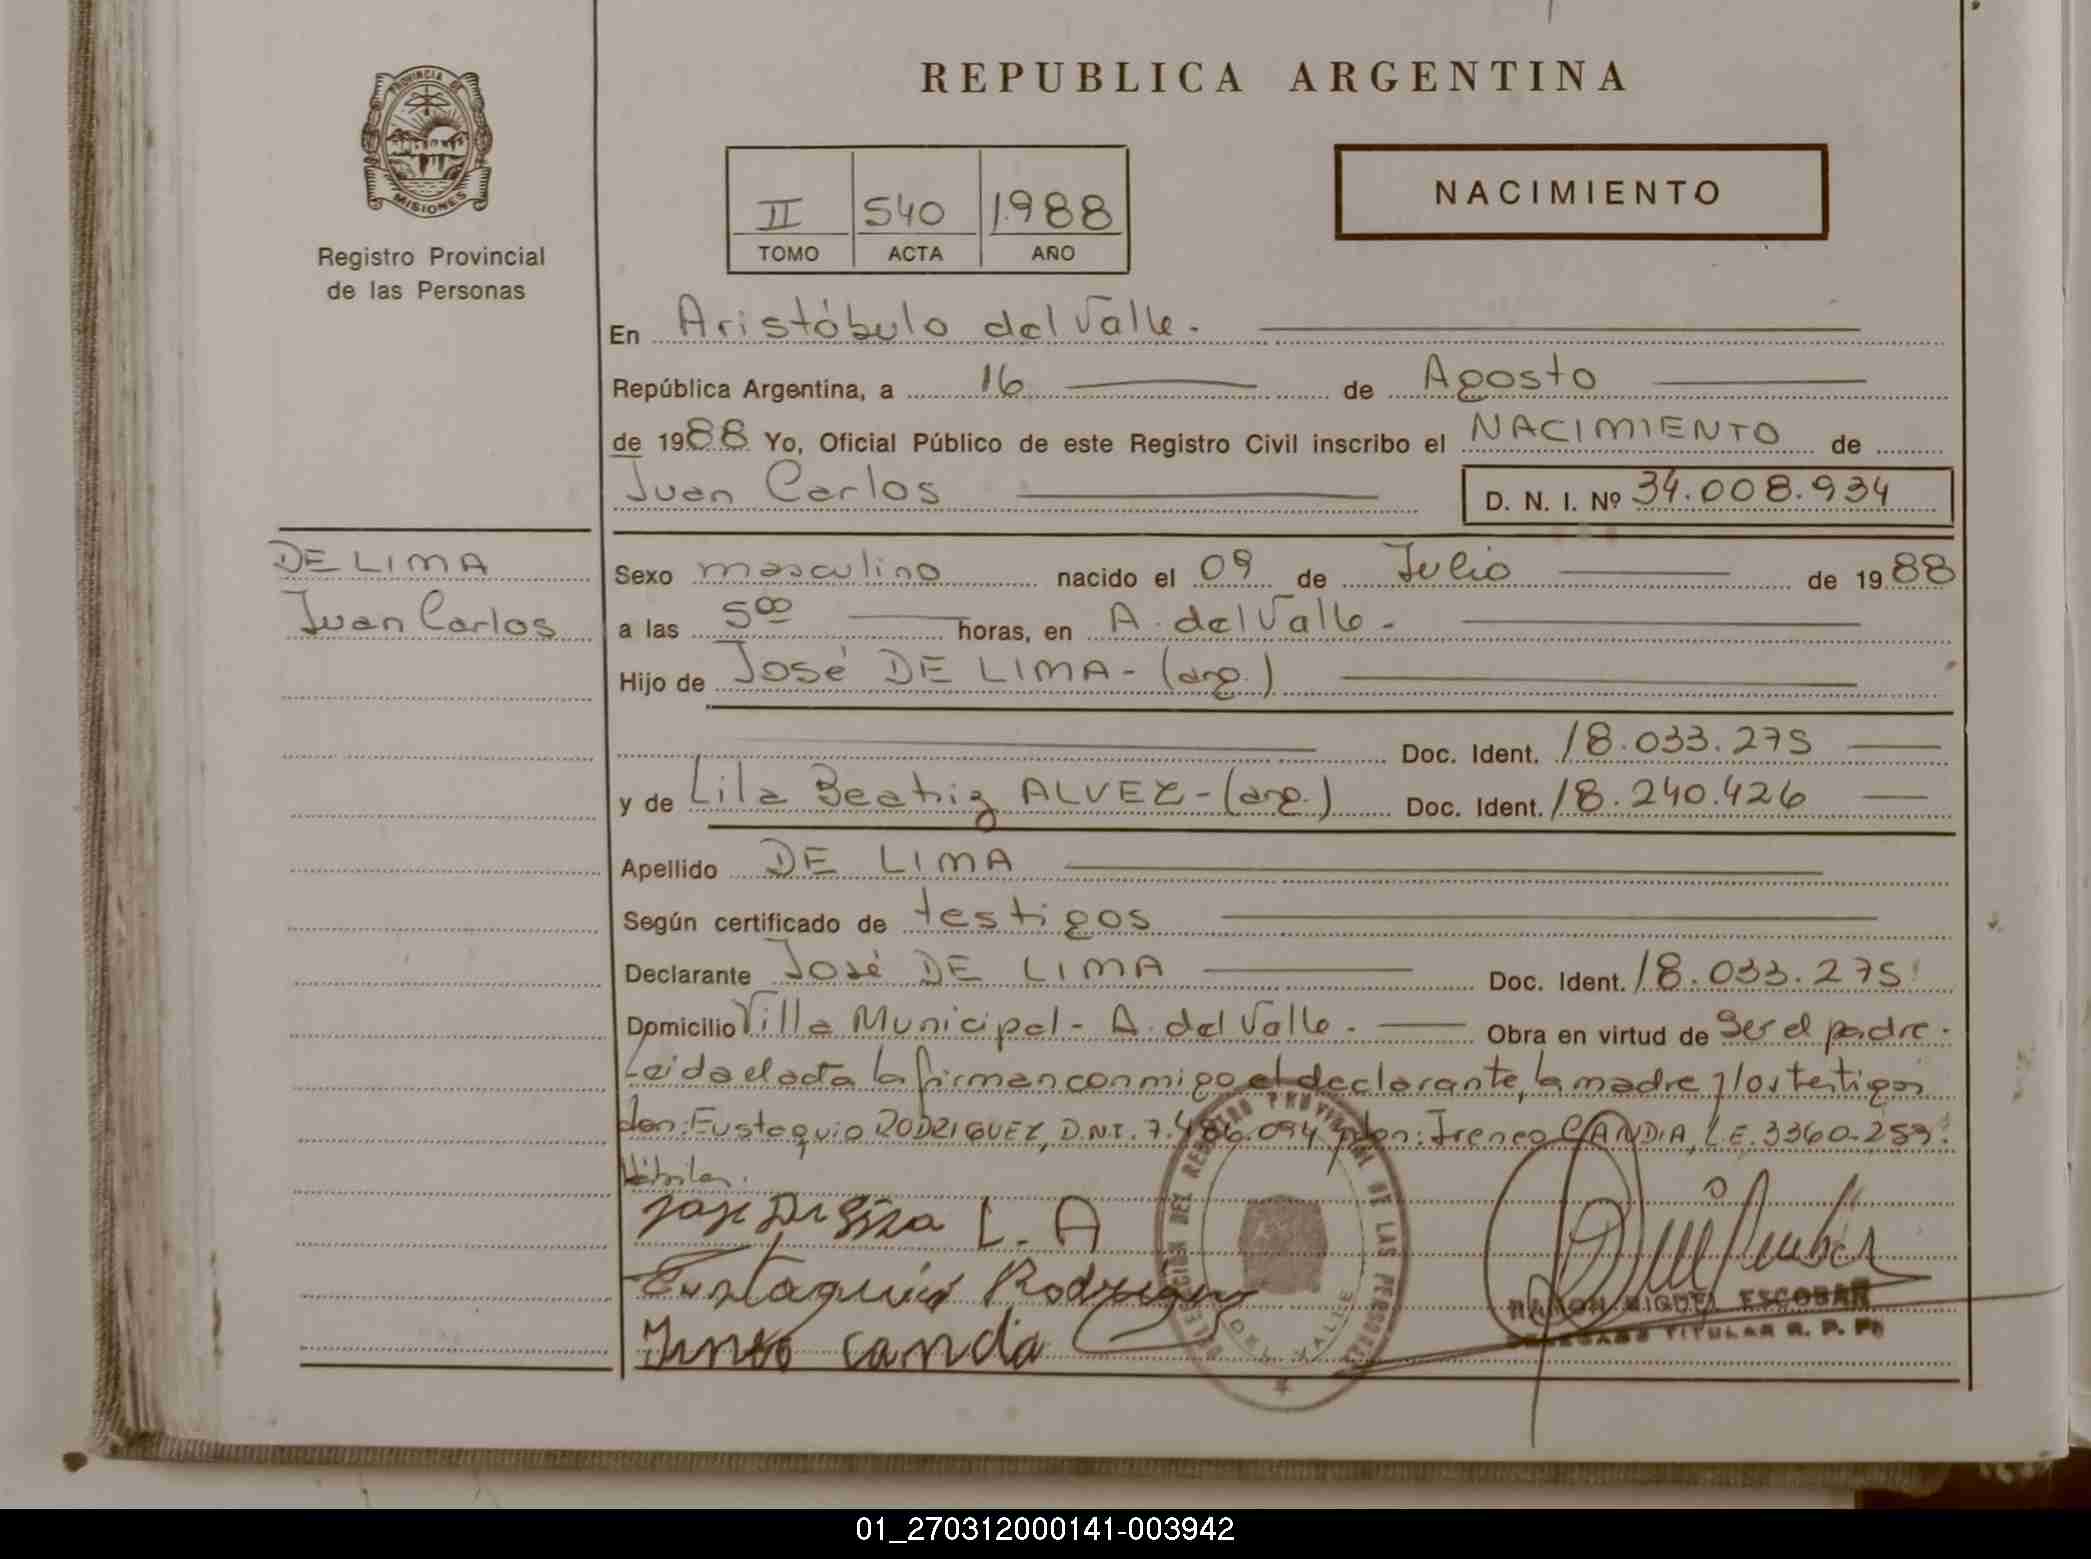 PROVINCIA DE
MISIONES
Registro Provincial
de las Personas
REPUBLICA ARGENTINA
II 540 1988
TOMO ACTA AÑO
NACIMIENTO
En Aristóbulo del Valle.
República Argentina, a 16 de Agosto
de 1988 Yo, Oficial Público de este Registro Civil inscribo el NACIMIENTO de
Juan Carlos D. N. I. Nº 34.008.934
DE LIMA
Juan Carlos
Sexo masculino nacido el 09 de Julio de 1988
a las 5 00 horas, en A. del Valle.
Hijo de José DE LIMA - (arg.)
Doc. Ident. 18.033.275
y de Lila Beatriz ALVEZ - (arg.) Doc. Ident. 18.240.426
Apellido DE LIMA
Según certificado de testigos
Declarante José DE LIMA Doc. Ident. 18.033.275
Domicilio Villa Municipal - A. del Valle. Obra en virtud de Ser el padre.
Leida el acta la firman conmigo el declarante, la madre y los testigos
don: Eustaquio RODRIGUEZ, D.N.I. 7.486.094 y don: Ireneo CANDIA, L.E. 3360.253.
L. A
Eustaquio Rodriguez
canda
DEL REGISTRO PROVINCIAL DE LAS PERSONAS
DEL VALLE
RAMON MIGUEL ESCOBAR
DELEGADO TITULAR R. P. P.
01_270312000141-003942